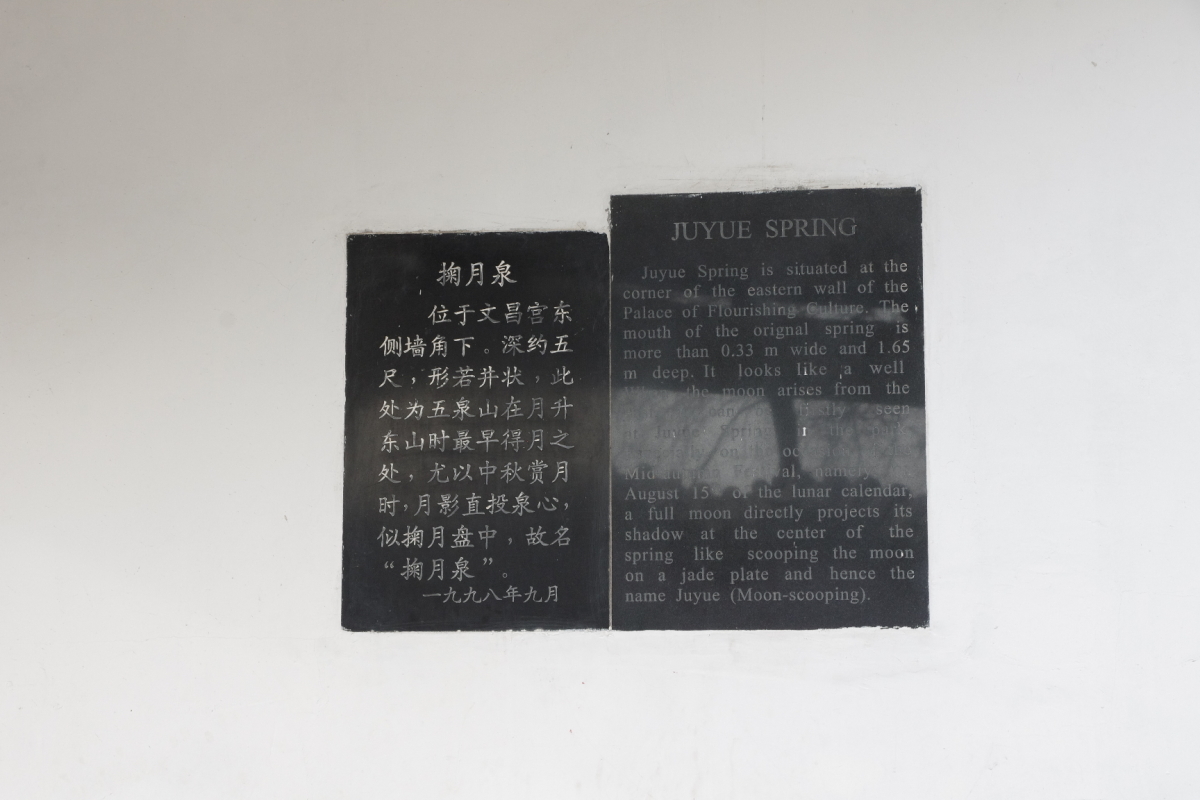 掬月泉
位于文昌宫东
侧墙角下。深约五
尺，形若井状，此
处为五泉山在月升
东山时最早得月之
处，尤以中秋赏月
时，月影直投泉心，
似掬月盘中，故名
“掬月泉”。
一九九八年九月
JUYUE SPRING
Juyue Spring is situated at the
corner of the eastern wall of the
Palace of Flourishing Culture. The
mouth of the orignal spring is
more than 0.33 m wide and 1.65
m deep. It looks like a well
the moon arises from the
can seen
at Juyue Spring the
on the
Mid-autumn Festival, namely
August 15th of the lunar calendar,
a full moon directly projects its
shadow at the center of the
spring like scooping the moon
on a jade plate and hence the
name Juyue (Moon-scooping).